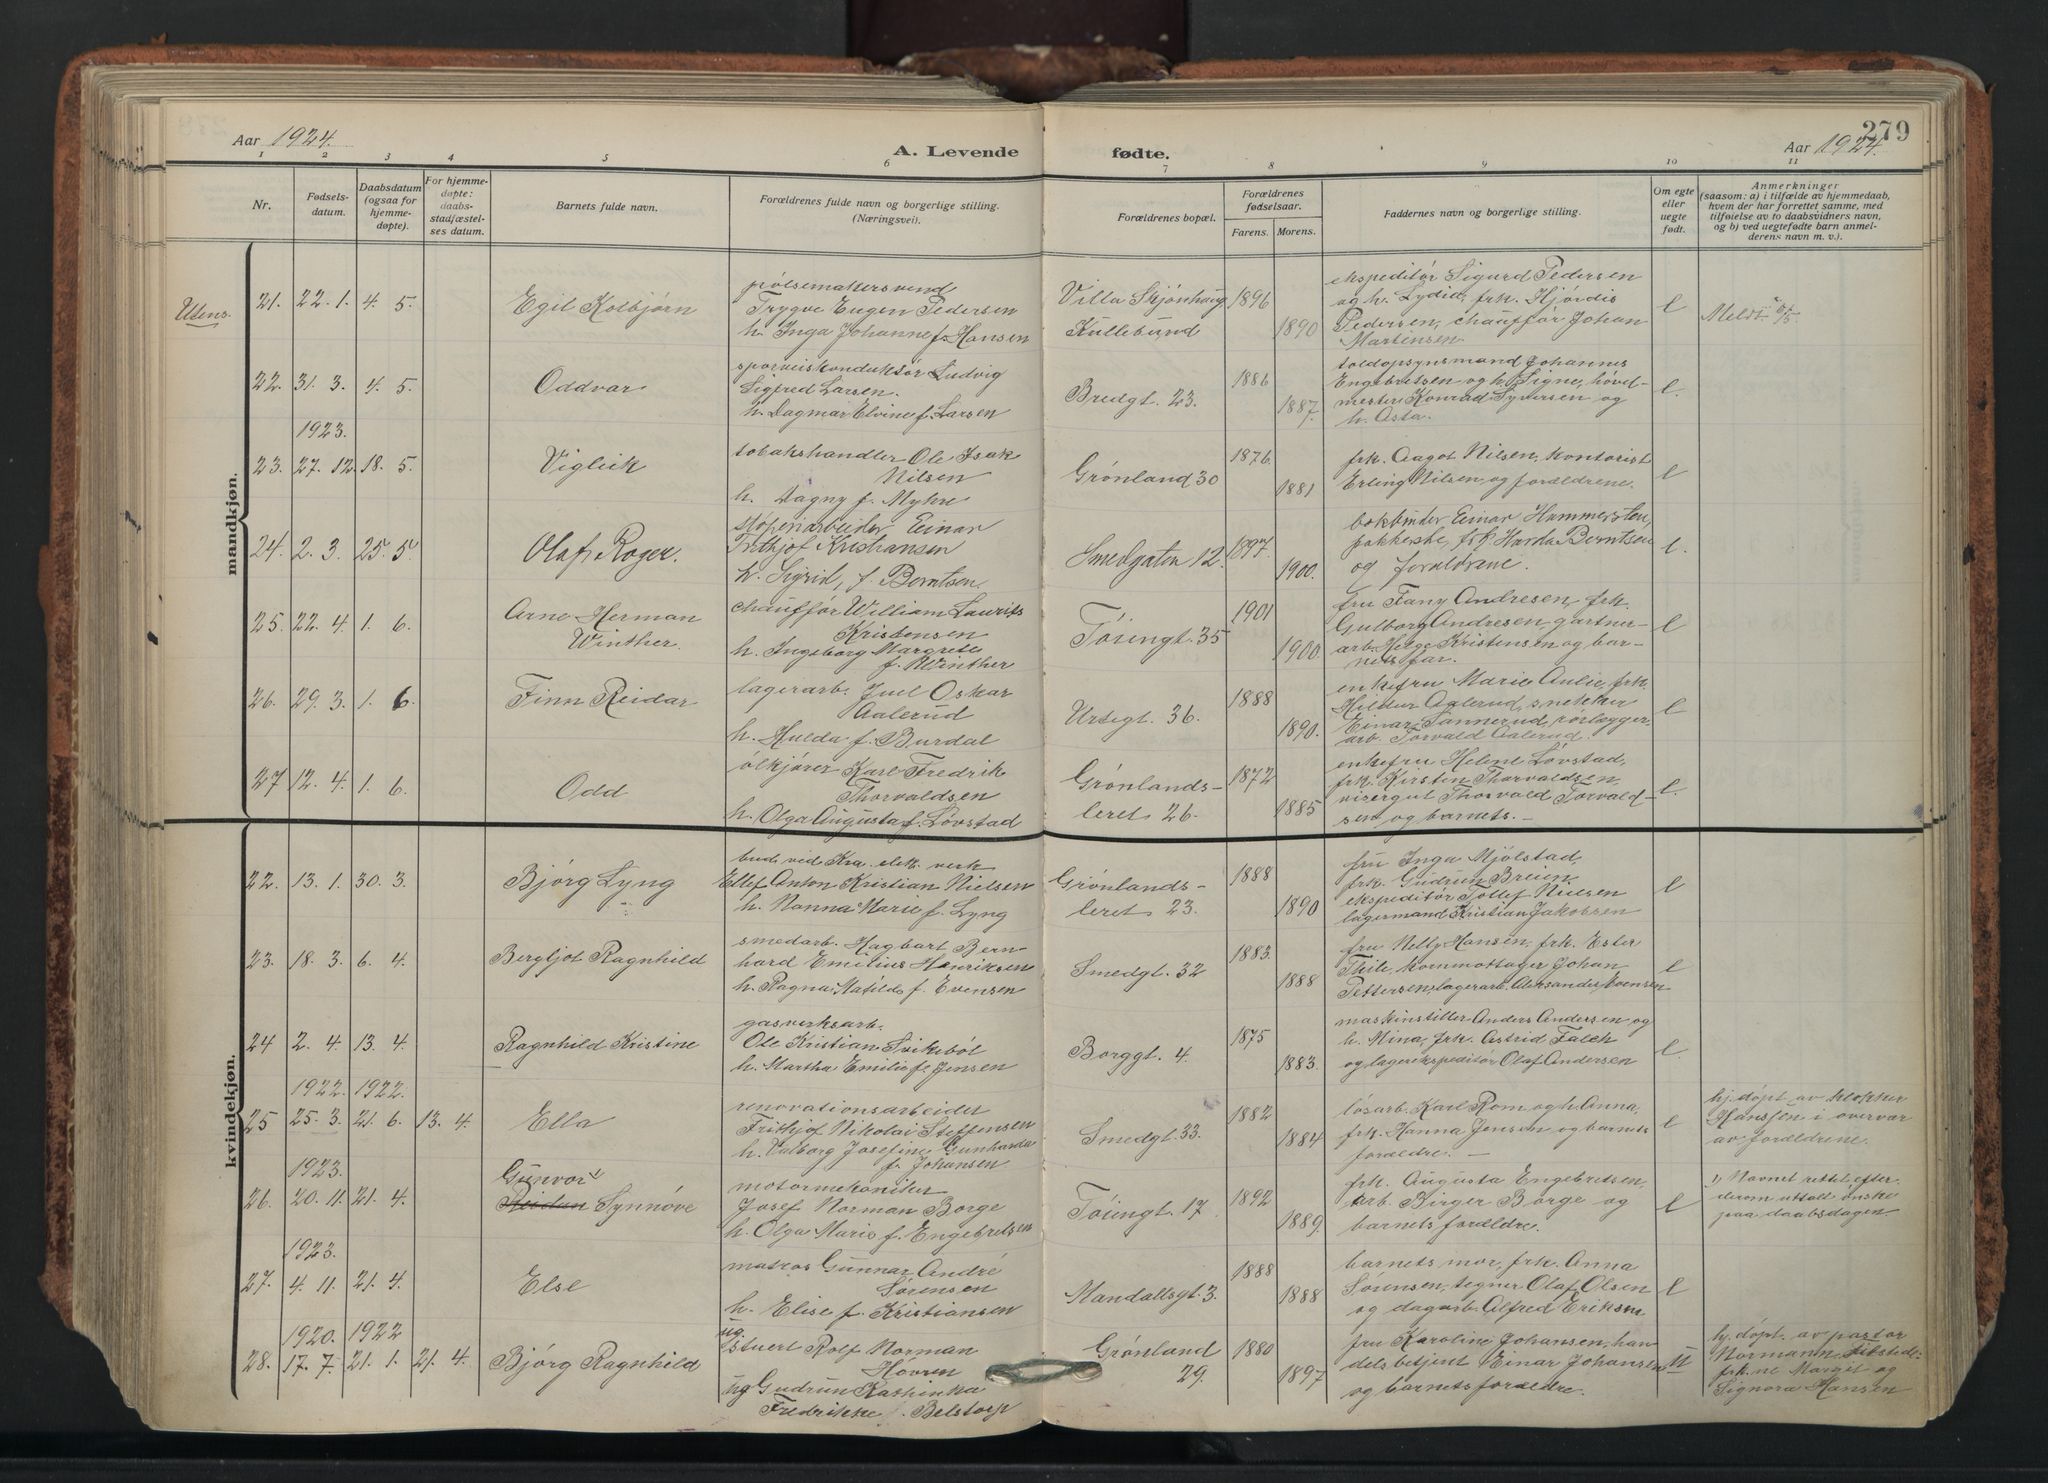 Aar 1924.
A. Levende
fødte.
279
Aar 1924.
1 2 3 4 5 6 7 8 9 10 11
Nr.
Fødsels-
datum.
Daabsdatum
(ogsaa for
hjemme-
døpte).
For hjemme-
døpte:
daabs-
stadfæstel-
ses datum.
Barnets fulde navn.
Forældrenes fulde navn og borgerlige stilling.
(Næringsvei).
Forældrenes bopæl.
Forældrenes
fødselsaar.
Farens. Morens.
Faddernes navn og borgerlige stilling.
Om egte
eller
uegte
født.
Anmerkninger
(saasom: a) i tilfælde av hjemmedaab,
hvem der har forrettet samme, med
tilføielse av to daabsvidners navn,
og b) ved uegtefødte barn anmel-
derens navn m. v.).
mandkjøn.
Utens.
21. 22. 1. 4. 5.
Egil Kolbjørn
pølsemakersvend
Trygve Eugen Pedersen
h. Inga Johanne f. Hansen
Villa Skjønhaug
Kullebund
1896
1890
ekspeditør Sigurd Pedersen
og h. Lydia, frk. Hjørdis
Pedersen, chauffør Johan
Martinsen
e
Meldt 6/5.
22. 31. 3. 4. 5.
Oddvar
sporveiskonduktør Ludvig
Sigfred Larsen.
h. Dagmar Elvine f. Larsen
Bredgt. 23.
1886
1887.
toldopsynsmand Johannes
Engebretsen og h. Signe, hovel-
mester Konrad Syversen og
h. Asta.
e.
1923.
23. 27. 12. 18. 5.
Vigleik
tobakshandler Ole Isak
Nilsen
h. Dagny f. Myhre
Grønland 30
1876.
1881
frk. Aagot Nilsen, kontorist
Erling Nilsen, og forældrene.
e
24. 2. 3. 25. 5
Olaf Roger.
støperiarbeider Einar
Frithjof Kristiansen
h. Sigrid, f. Berntsen
Smedgaten 12.
1897.
1900.
bokbinder Einar Hammersten,
pakkerske, frk. Harda Berntsen
og forældrene.
e.
25. 22. 4. 1. 6.
Arne Herman
Winther.
chauffør William Laurits
Kristensen
h. Ingeborg Margrete
f. Winther
Tøiengt. 35
1901
1900.
fru Fany Andresen, frk.
Gulborg Andresen, gartner-
arb. Helge Kristensen og bar-
nets far.
e
26. 29. 3. 1. 6
Finn Reidar
lagerarb. Juel Oskar
Aalerud
h. Hulda f. Burdal
Urtegt. 36.
1888
1890.
enkefru Marie Aulie, frk.
Hildur Aalerud, snekker
Einar Tannerud, rørlægger-
arb. Torvald Aalerud.
e
27 12. 4. 1. 6.
Odd
ølkjører Karl Fredrik
Thorvaldsen
h. Olga Augusta f. Løvstad
Grønlands-
leret 26.
1872
1885
enkefru Helene Løvstad,
frk. Kirsten Thorvaldsen
visergut Thorvald Torvald-
sen og barnets. -
e.
kvindekjøn.
22. 13. 1. 30. 3.
Bjørg Lyng
bud ved Kra. elek. verk
Ellef Anton Kristian Nielsen
h. Nanna Marie f. Lyng
Grønlands-
leret 23.
1888
1890
fru Inga Mjølstad,
frk. Gudrun Breien,
ekspeditør Tollef Nielsen
lagermand Kristian Jakobsen
e
23. 18. 3. 6. 4.
Bergljot Ragnhild
smedarb. Hagbart Bern-
hard Emilius Henriksen
h. Ragna Matilde f. Evensen
Smedgt. 32
1883.
1888
fru Nelly Hansen, frk. Ester
Thile, kommottager Johan
Pettersen, lagerarb. Aleksander Evensen
e
24 2. 4. 13. 4.
Ragnhild Kristine
gasverksarb.
Ole Kristian Svikebøl
h. Martha Emilie f. Jensen
Borggt. 4.
1875
1883.
maskinstiller Anders Andersen og
h. Mina, frk. Astrid Falch
og lagerekspeditør Olaf Andersen
e.
1922. 1922.
25 25. 3. 21. 6. 13. 4.
Ella
renovationsarbeider
Frithjof Nikolai Steffensen
h. Valborg Josefine Gunharda
f. Johansen
Smedgt. 33.
1882
1884
løsarb. Karl Rom og h. Anna,
frk. Hanna Jensen og barnets
forældre. -
e
hj. døpt av klokker
Hanssen i overvær
av forældrene.
1923.
26. 20. 11. 21. 4.
Gunvor 1)
Reidun Synnøve
motormekaniker
Josef Norman Borge
h. Olga Marie f. Engebretsen
Tøiengt. 17.
1892
1889.
frk. Augusta Engebretsen,
arb. Birger Borge og
barnets forældre.
e
1) Navnet rettet efter
derom uttalt ønske
paa daabsdagen.
1923.
27. 4. 11. 21. 4.
Else
matros Gunnar André
Sørensen
h. Elise f. Kristiansen
Mandallsgt. 3.
1888
1888
barnets mor, frk. Anna
Sørensen, tegner Olaf Olsen
og dagarb. Alfred Eriksen
e
1920. 1922
28. 17. 7. 21. 1. 21. 4.
Bjørg Ragnhild
ug.
stuert Rolf Norman
Høvren
ug Gudrun Kathinka
Fredrikke f. Belstorp
Grønland
29.
1880
1897
fru Karoline Johansen, han-
delsbetjent Einar Johansen
og barnets forældre.
u
hj. døpt av pastor
Normann,
frk.ne Margit og
Signora Hansen